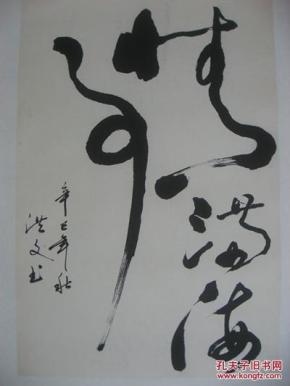 情满海
辛巳年秋
洪文书
孔夫子旧书网
kongfz.com